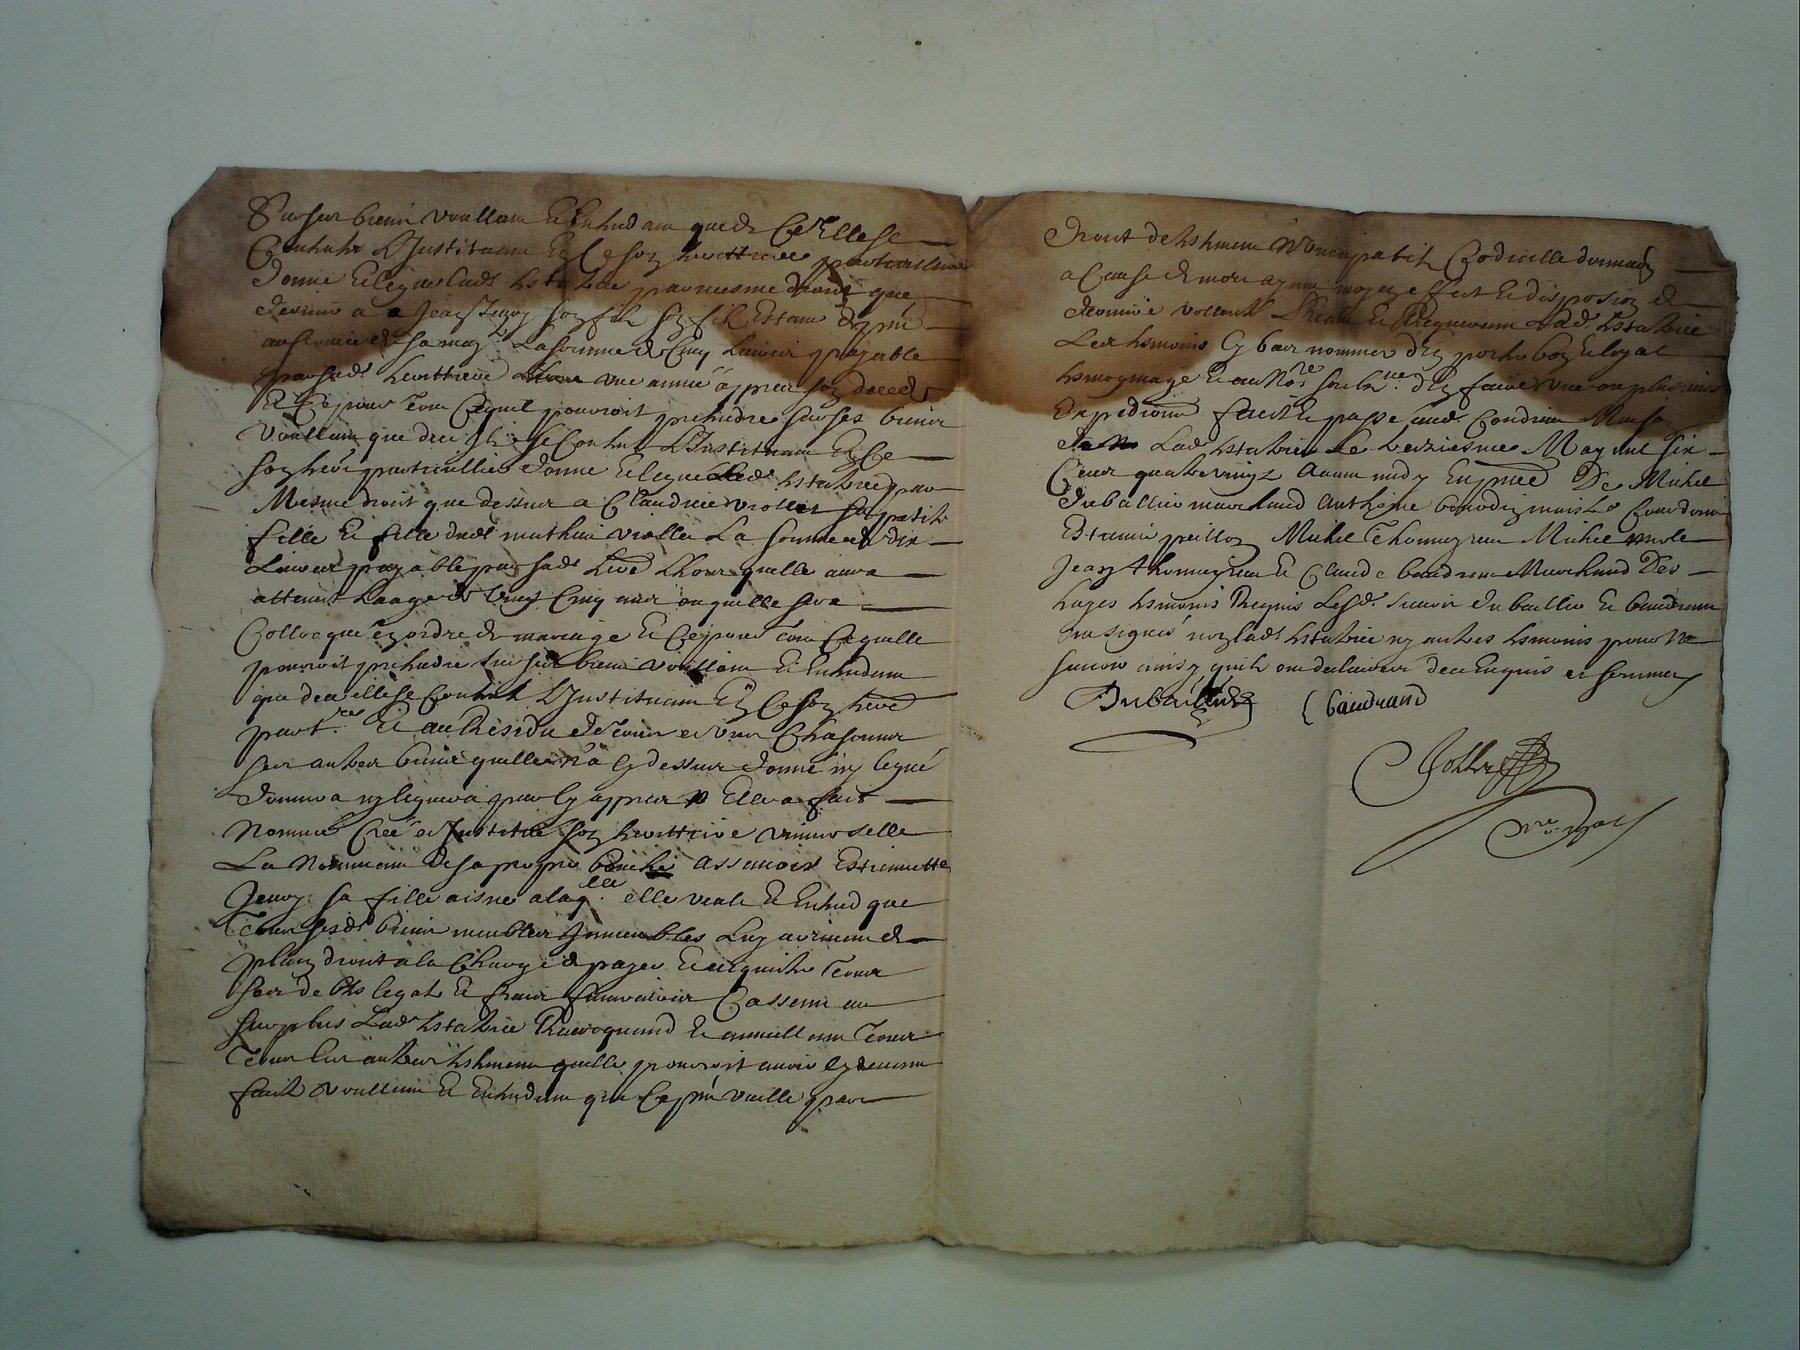 Sur ses biens voullant et entendant que de ce elle se
contente l'Instituant en ce son herittiere particulliere
donne et legue lad. testatrice par mesme droit que
dessus a Jean Jenoy son fils son fils estant de pnt
au service de sa maj. la somme de cinq livres payable
par sad. herittiere une année apprès son deceds
et ce pour tout ce quil pourroit pretendre sur ses biens
voullant que de ce il se contente l'Instituant en ce
son heri. particullier donne et legue lad. testatrice par
mesme droit que dessus a Claudine viollet sa petite
fille et fille dud. mathieu viollet la somme de dix
livres payable par sad. herit. lhors quelle aura
atteint laage de vingt cinq ans ou quelle sera
colloquée en ordre de mariage et ce pour tout ce quelle
pourroit pretendre sur ses biens voullant et entendant
que de ce elle se contente l'Instituant en ce son herit.
part.re et au Residu de tous et uns chascuns
ses autres biens quelle n'a cy dessus donné ny legué
donnera ny leguera par cy apprès elle a fait
nommé créé et Institué son herittiere universelle
la nommant de sa propre bouche assavoir Estiennette
Jenoy sa fille aisnée a laq.lle elle veult et entend que
tous sesd. biens meubles Immeubles luy aviennent de
plain droit a la charge de payer et acquitter tous
ses debts legats et frais funeraires Cassant au
surplus lad. testatrice Revoquant et annullant tous
tous les autres testament quelle pourroit avoir cy devant
fait voullant et entendant que ce pnt vaille par
droit de testament Noncupatif Codicille donnaon
a cause de mort ayant moyen effect et disposion de
derniere volonté Priant et Requerant lad. testatrice
les tesmoins cy bas nommés d'en porter bon et loyal
tesmoignage et au No.re soubz.né d'en faire une ou plusieurs
expedions fait et passé aud. Condrieu Maison
de lad. testatrice le treiziesme May mil six
cens quatre vingt avant midy en pnce De Michel
Dubaillier marchand Anthoine
Estienne peillon Michel Thomeyreu Michel
Jean Thomeyreu et Claude baudrand Marchand Des
hayes tesmoins Requis Lesd. sieurs dubaillier et baudrand
ont signés non lad. testatrice ny autres tesmoins pour ne
scavoir ainsy quils ont declaires de ce enquis et sommes
Dubaillier
baudrand
Nre. Royal